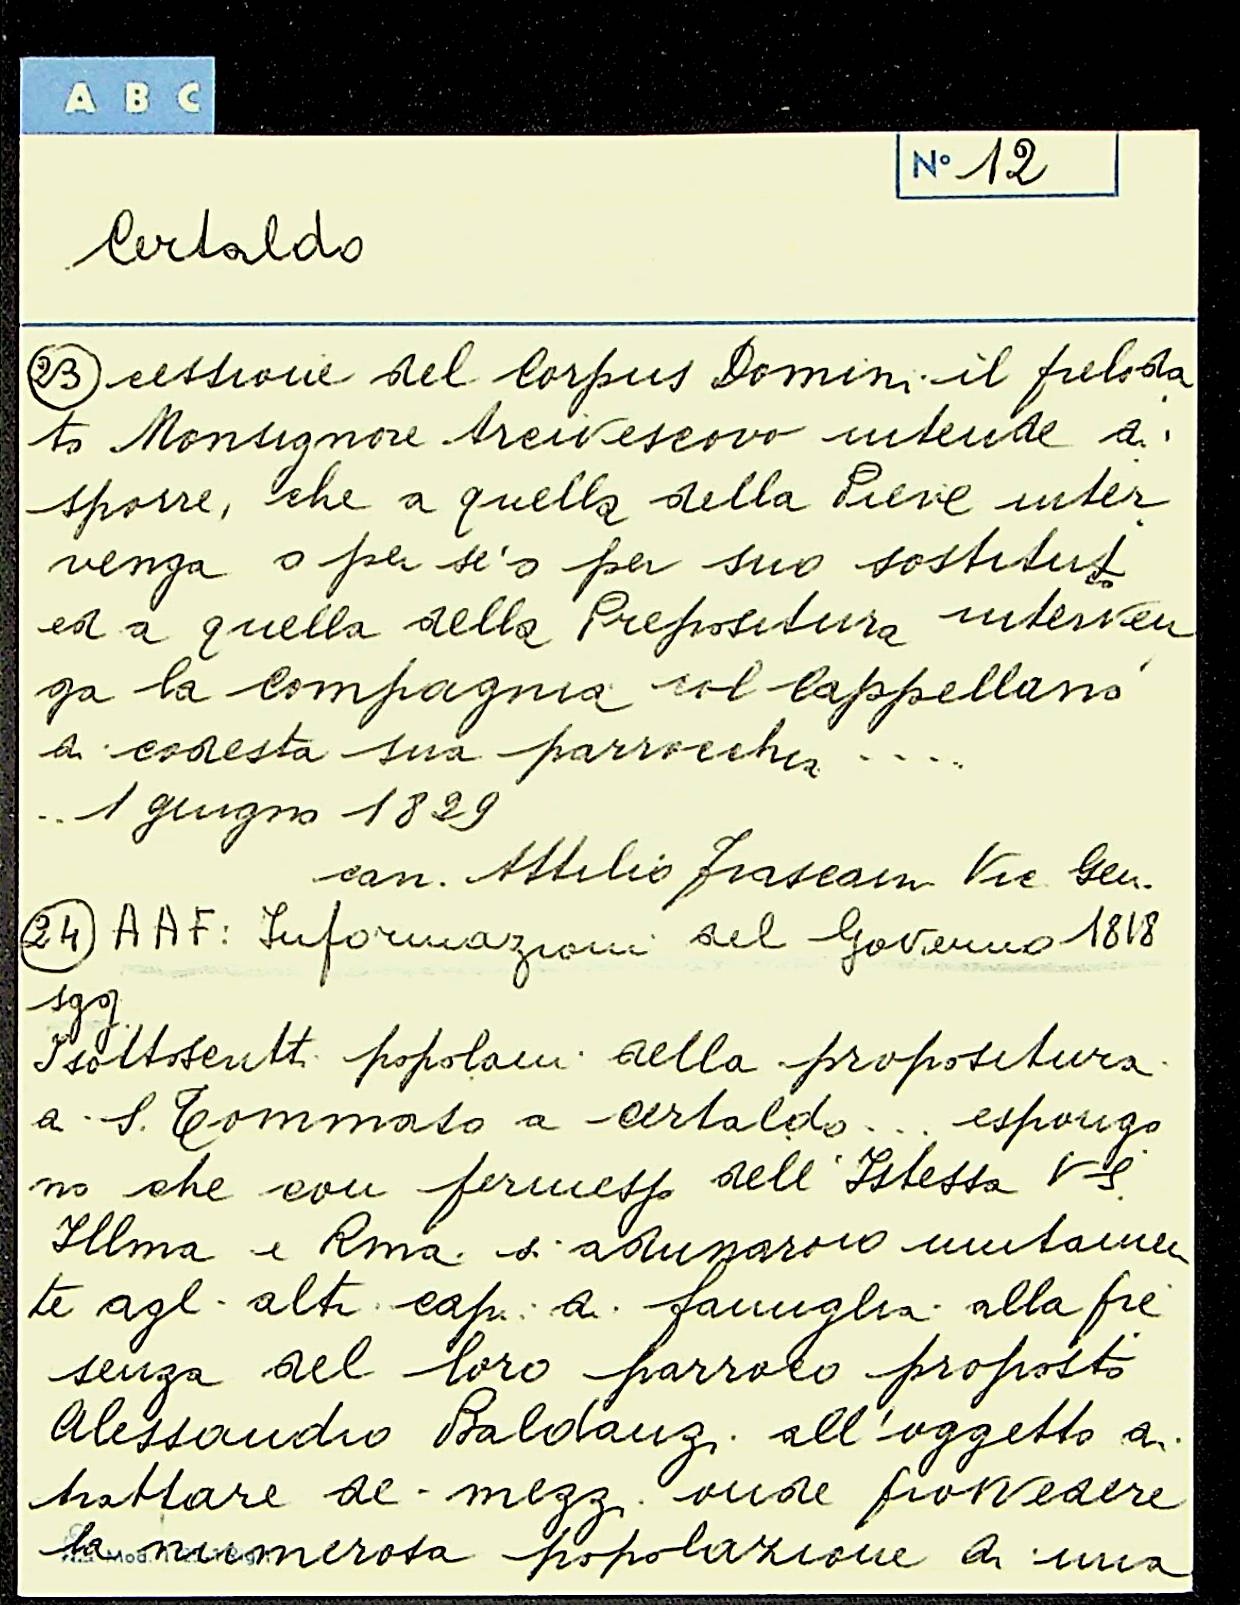 A B C
N° 12
Certaldo
23 cessione del Corpus Domini il preloda
to Monsignore Arcivescovo intende di
sporre, che a quella della Pieve inter
venga o per se' o per suo sostituto
ed a quella della Prepositura interven
ga la Compagnia col Cappellano
di codesta sua parrocchia ....
.. 1 giugno 1829
can. Attilio Vic Gen.
24 AAF: Informazioni del Governo 1818
sgg.
I sottoscritti popolani della propositura
di S. Tommaso a Certaldo ... espongo
no che con permesso dell'Istessa VS
Illma e Rma. si adunarono unitamen
te agli altri capi di famiglia alla pre
senza del loro parroco proposto
Alessandro Baldanzi all'oggetto di
trattare dei mezzi onde provvedere
la numerosa popolazione di una
Mod.